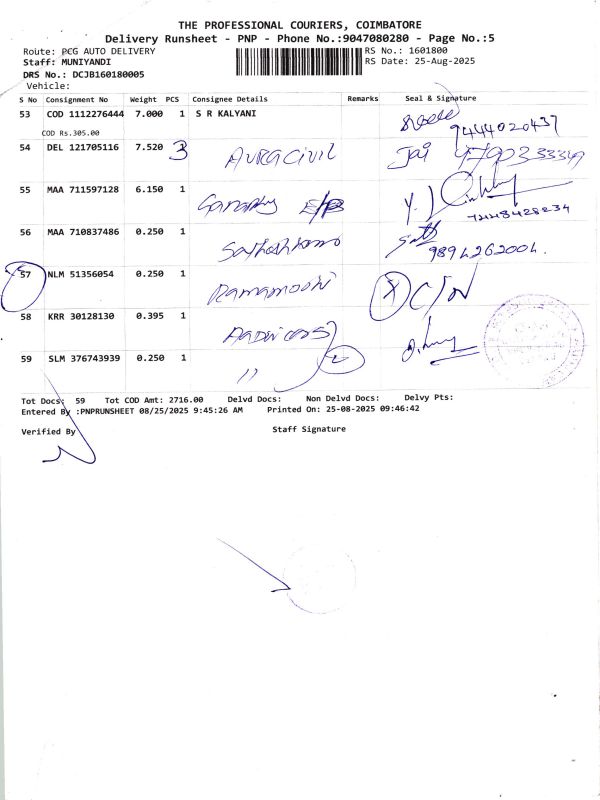 THE PROFESSIONAL COURIERS, COIMBATORE
Delivery Runsheet - PNP - Phone No.:9047080280 - Page No.:5
Route: PCG AUTO DELIVERY RS No.: 1601800
Staff: MUNIYANDI RS Date: 25-Aug-2025
DRS No.: DCJB160180005
Vehicle:
S No Consignment No Weight PCS Consignee Details Remarks Seal & Signature
53 COD 1112276444 7.000 1 S R KALYANI 9444020437
COD Rs.305.00
54 DEL 121705116 7.520 3 AURA CIVIL Jai
55 MAA 711597128 6.150 1
56 MAA 710837486 0.250 1
57 NLM 51356054 0.250 1 Ramamoorthi C/N
58 KRR 30128130 0.395 1
59 SLM 376743939 0.250 1 ''
Tot Docs: 59 Tot COD Amt: 2716.00 Delvd Docs: Non Delvd Docs: Delvy Pts:
Entered By :PNPRUNSHEET 08/25/2025 9:45:26 AM Printed On: 25-08-2025 09:46:42
Verified By Staff Signature